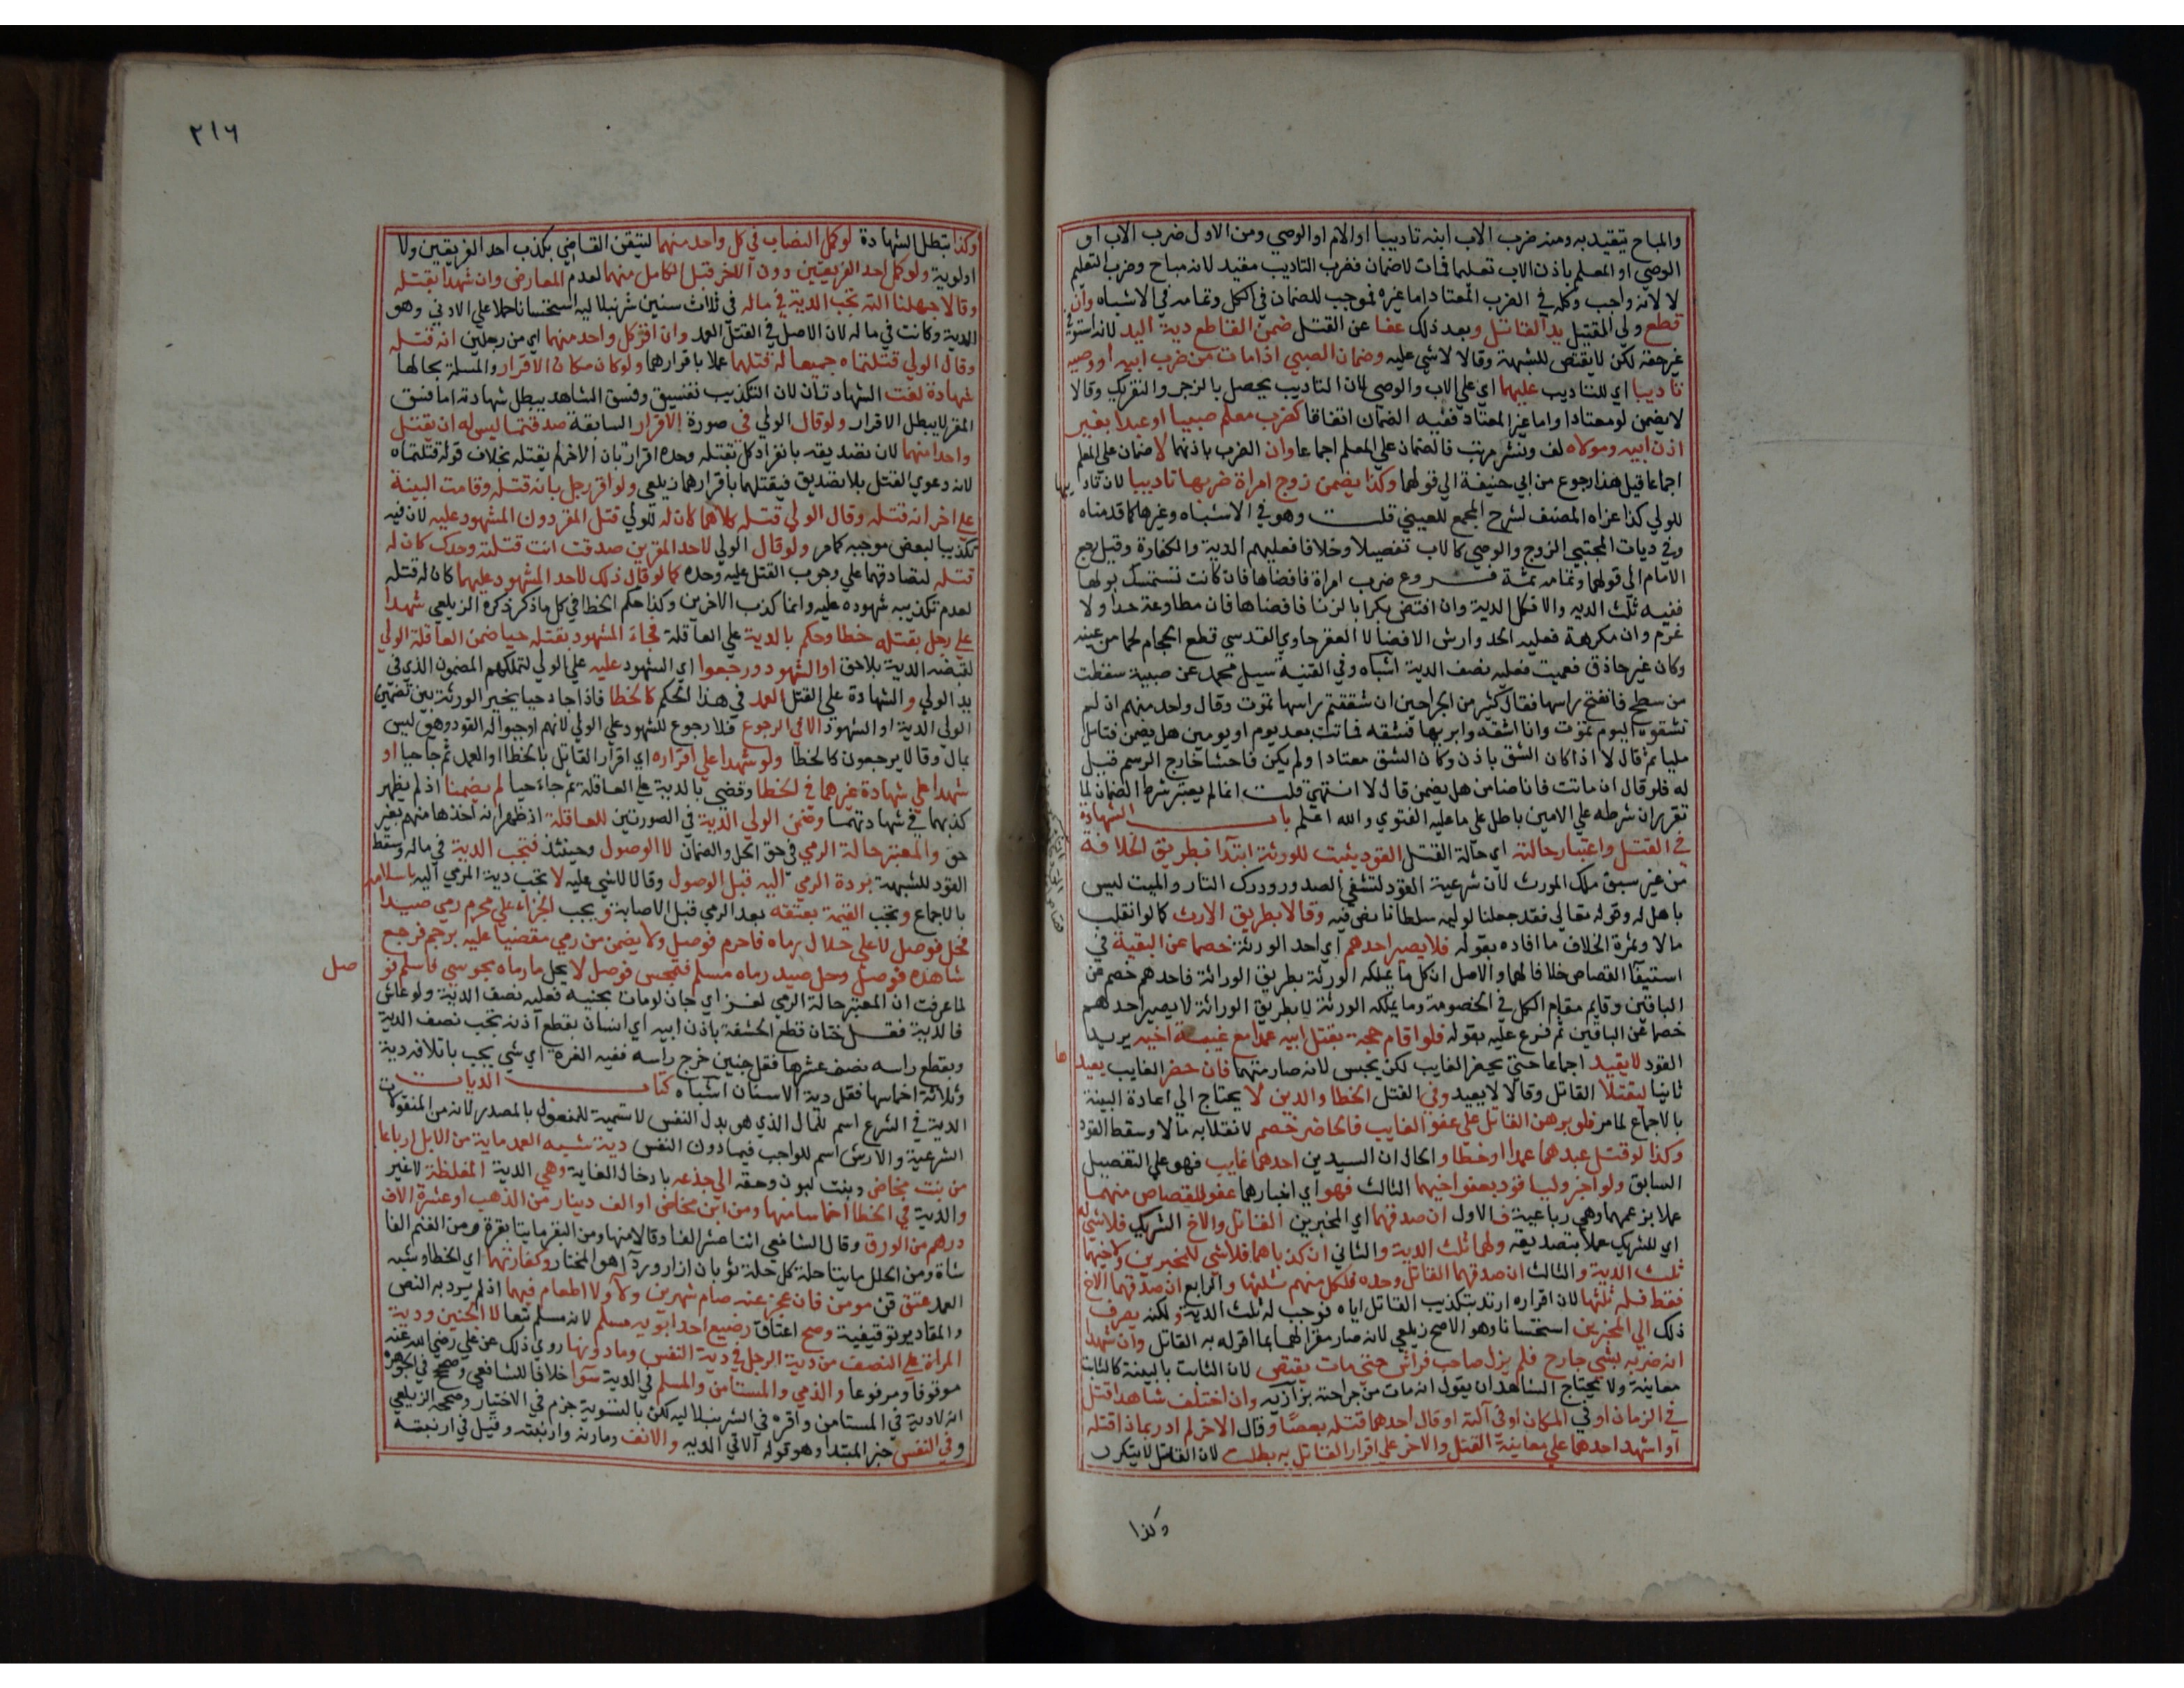 والمباح يتقيد به ومنه ضرب الاب ابنه تاديبا او الام او الوصي ومن الاول ضرب الاب او
الوصي او المعلم باذن الاب تعليما فمات لاضمان فضرب التاديب مقيد لانه مباح وضرب التعليم
لا لانه واجب وكله في الضرب المعتاد اما غيره فموجب للضمان في الكل وتمامه في الاشباه وان
قطع ولي القتيل يد القاتل وبعد ذلك عفا عن القتل ضمن القاطع دية اليد لانه استوفى
غير حقه لكن لا يقتص للشبهة وقالا لا شي عليه وضمان الصبي اذا مات من ضرب ابيه او وصيه
تاديبا اي للتاديب عليهما اي علي الاب والوصي لان التاديب يحصل بالزجر والتعريك وقالا
لا يضمن لو معتادا واما غير المعتاد ففيه الضمان اتفاقا كضرب معلم صبيا او عبدا بغير
اذن ابيه ومولاه لف ونشر مرتب فالضمان علي المعلم اجماعا وان الضرب باذنهما لا ضمان علي المعلم
اجماعا قيل هذا رجوع من ابي حنيفة الي قولهما وكذا يضمن زوج امراة ضربها تاديبا لان تاديبها
للولي كذا عزاه المصنف لشرح المجمع للعيني قلت وهو في الاشباه وغيرها كما قدمناه
وفي ديات المجتبي الزوج والوصي كالاب تفصيلا وخلافا فعليهم الدية والكفارة وقيل رجع
الامام الي قولهما وتمامه ثمة فروع ضرب امراة فافضاها فان كانت تستمسك بولها
ففيه ثلث الديه والا فكل الدية وان افتض بكرا بالزنا فافضاها فان مطاوعة حدا ولا
غرم وان مكرهة فعليه الحد وارش الافضا لا العقر حاوي القدسي قطع الحجام لحما من عينه
وكان غير حاذق فعميت فعليه نصف الدية اشباه وفي القنية سيل محمد عن صبية سقطت
من سطح فانفتح راسها فقال كثير من الجراحين ان شققتم راسها تموت وقال واحد منهم ان لم
تشقوه اليوم تموت وانا اشقه وابريها فشقه فماتت بعد يوم او يومين هل يضمن فتامل
مليا ثم قال لا اذا كان الشق باذن وكان الشق معتادا ولم يكن فاحشا خارج الرسم قيل
له فلو قال ان ماتت فانا ضامن هل يضمن قال لا انتهى قلت انما لم يعتبر شرط الضمان لما
تقرر ان شرطه علي الامين باطل علي ما عليه الفتوي والله اعلم باب الشهادة
في القتل واعتبار حالته اي حالة القتل القود يثبت للورثة ابتدا بطريق الخلافة
من غير سبق ملك المورث لان شرعية القود لتشفي الصدور ودرك الثار والميت ليس
باهل له وقوله تعالي فقد جعلنا لوليه سلطانا نص فيه وقالا بطريق الارث كما لو انقلب
مالا وثمرة الخلاف ما افاده بقوله فلا يصير احدهم اي احد الورثة خصما عن البقية في
استيفا القصاص خلافا لهما والاصل ان كل ما يملكه الورثة بطريق الوراثة فاحدهم خصم عن
الباقين وقايم مقام الكل في الخصومة وما يملكه الورثة لا بطريق الوراثة لا يصير احدهم
خصما عن الباقين ثم فرع عليه بقوله فلو اقام حجة بقتل ابيه عمدا مع غيبة اخيه يريد
القود لا يقيد اجماعا حتي يحضر الغايب لكن يحبس لانه صار متهما فان حضر الغايب يعيدها
ثانيا ليقتلا القاتل وقالا لا يعيد وفي القتل الخطا والدين لا يحتاج الي اعادة البينة
بالاجماع لما مر فلو برهن القاتل علي عفو الغايب فالحاضر خصم لانقلابه مالا وسقط القود
وكذا لو قتل عبدهما عمدا او خطا والحال ان السيدين احدهما غايب فهو علي التفصيل
السابق ولو اخبر وليا قود بعفو اخيهما الثالث فهو اي اخبارهما عفو للقصاص منهما
عملا بزعمهما وهي رباعية فالاول ان صدقهما اي المخبرين القاتل والاخ الشريك فلا شي له
اي للشريك عملا بتصديقه ولهما ثلث الدية والثاني ان كذباهما فلا شي للمخبرين ولاخيهما
ثلث الدية والثالث ان صدقهما القاتل وحده فلكل منهم ثلثها والرابع ان صدقهما الاخ
فقط فله ثلثها لان اقراره ارتد بتكذيب القاتل اياه فوجب له ثلث الدية ولكنه يصرف
ذلك الي المخبرين استحسانا وهو الاصح زيلعي لانه صار مقرا لهما بما اقر له به القاتل وان شهدا
انه ضربه بشي جارح فلم يزل صاحب فراش حتي مات يقتص لان الثابت بالبينة كالثابت
معاينة ولا يحتاج الشاهدان يقول انه مات من جراحته بزازيه وان اختلف شاهدا قتل
في الزمان او في المكان او في آلته او قال احدهما قتله بعصا وقال الاخر لم ادر بماذا قتله
او شهد احدهما علي معاينة القتل والاخر علي اقرار القاتل به بطلت لان القتل لا يتكرر
وكذا
٢١٦
وكذا تبطل الشهادة لو كمل النصاب في كل واحد منهما لتيقن القاضي بكذب احد الفريقين ولا
اولوية ولو كمل احد الفريقين دون الاخر قبل الكامل منهما لعدم المعارض وان شهدا بقتله
وقالا جهلنا آلته تجب الدية في ماله في ثلاث سنين شرنبلاليه استحسانا حملا علي الادني وهو
الدية وكانت في ماله لان الاصل في القتل العمد وان اقر كل واحد منهما اي من رجلين انه قتله
وقال الولي قتلتماه جميعا له قتلهما عملا باقرارهما ولو كان مكان الاقرار والمسلة بحالها
شهادة لغت الشهادتان لان التكذيب تفسيق وفسق الشاهد يبطل شهادته اما فسق
المقر لا يبطل الاقرار ولو قال الولي في صورة الاقرار السابقة صدقتما ليس له ان يقتل
واحدا منهما لان تصديقه بانفراد كل بقتله وحده اقرار بان الاخر لم يقتله بخلاف قوله قتلتماه
لانه دعوي القتل بلا تصديق فيقتلهما باقرارهما زيلعي ولو اقر رجل بانه قتله وقامت البينة
علي اخر انه قتله وقال الولي قتله كلاهما كان له للولي قتل المقر دون المشهود عليه لان فيه
تكذيبا لبعض موجبه كما مر ولو قال الولي لاحد المقرين صدقت انت قتلته وحدك كان له
قتله لتصادقهما علي وجوب القتل عليه وحده كما لو قال ذلك لاحد المشهود عليهما كان له قتله
لعدم تكذيبه شهوده عليه وانما كذب الاخرين وكذا حكم الخطا في كل ما ذكر ذكره الزيلعي شهدا
علي رجل بقتله خطا وحكم بالدية علي العاقلة فجاء المشهود بقتله حيا ضمن العاقلة الولي
لقبضه الدية بلا حق او الشهود ورجعوا اي الشهود عليه علي الولي لتملكهم المضمون الذي في
يد الولي والشهادة علي القتل العمد في هذا الحكم كالخطا فاذا جا حيا يخير الورثة بين تضمين
الولي الدية او الشهود الا في الرجوع فلا رجوع للشهود علي الولي لانهم اوجبوا له القود وهو ليس
بمال وقالا يرجعون كالخطا ولو شهدا علي اقراره اي اقرار القاتل بالخطا او العمد ثم جا حيا او
شهدا علي شهادة غيرهما في الخطا وقضي بالدية علي العاقلة ثم جاء حيا لم يضمنا اذ لم يظهر
كذبهما في شهادتهما وضمن الولي الدية في الصورتين للعاقلة اذ ظهر انه اخذها منهم بغير
حق والمعتبر حالة الرمي في حق الحل والضمان لا الوصول وحينئذ فتجب الدية في ماله وسقط
القود للشبهة بردة الرمي اليه قبل الوصول وقالا لا شي عليه لا تجب دية المرمي اليه باسلامه
بالاجماع وتجب القيمة بعتقه بعد الرمي قبل الاصابة ويجب الجزاء علي محرم رمي صيدا
فحل فوصل لا علي حلال رماه فاحرم فوصل ولا يضمن من رمي مقضيا عليه برجم فرجع
شاهده فوصل وحل صيد رماه مسلم فتمجس فوصل لا يحل ما رماه مجوسي فاسلم فو
صل
لما عرفت ان المعتبر حالة الرمي لغز اي جان لو مات مجنيه فعليه نصف الدية ولو عاش
فالدية فقل ختان قطع الحشفة باذن ابيه اي انسان بقطع اذنه تجب نصف الدية
وبقطع راسه نصف عشرها فقل جنين خرج راسه ففيه الغرة اي شي يجب باتلافه دية
وثلاثة اخماسها فقل دية الاسنان اشباه كتاب الديات
الدية في الشرع اسم للمال الذي هو بدل النفس لا تسمية للمفعول بالمصدر لانه من المنقولات
الشرعية والارش اسم للواجب فيما دون النفس دية شبه العمد ماية من الابل ارباعا
من بنت مخاض وبنت لبون وحقه الي جذعه بادخال الغاية وهي الدية المغلظة لا غير
والدية في الخطا اخماسا منها ومن ابن مخاض او الف دينار من الذهب او عشرة الاف
درهم من الورق وقال الشافعي اثنا عشر الفا وقالا منها ومن البقر مايتا بقرة ومن الغنم الفا
شاة ومن الحلل مايتا حلة كل حلة ثوبان ازار وردآ هو المختار وكفارتهما اي الخطا وشبه
العمد عتق قن مومن فان عجز عنه صام شهرين ولاء ولا اطعام فيهما اذ لم يرد به النص
والمقادير توقيفية وصح اعتاق رضيع احد ابويه مسلم لانه مسلم تبعا لا الجنين ودية
المراة علي النصف من دية الرجل في دية النفس وما دونها روي ذلك عن علي رضي الله عنه
موقوفا ومرفوعا والذمي والمستامن والمسلم في الدية سوآ خلافا للشافعي وصحح في الجوهرة
انه لادية في المستامن واقره في الشرنبلاليه لكن بالتسوية جزم في الاختيار وصححه الزيلعي
وفي النفس خبر المبتدا وهو قوله الاتي الديه والانف ومارنه وارنبته وقيل في ارنبته